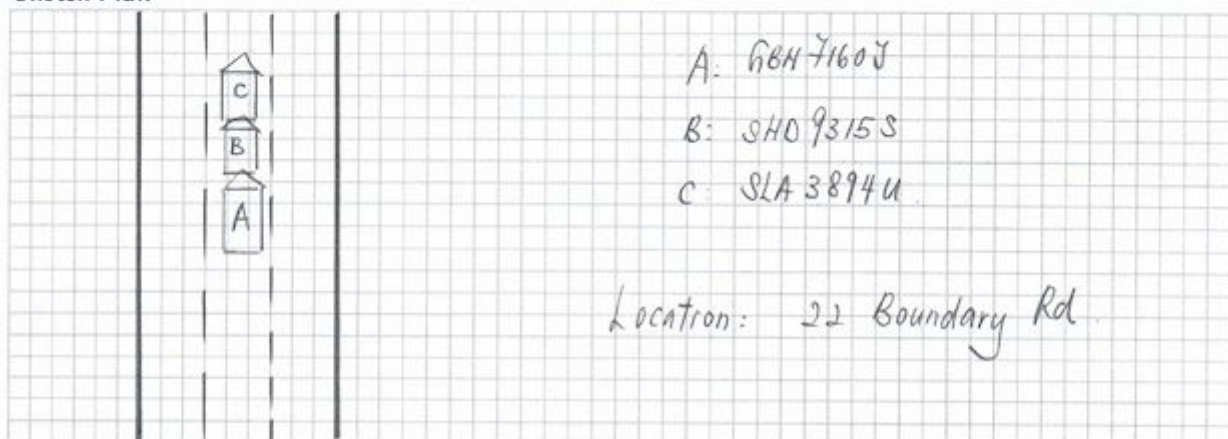 C
B
A
A: GBH 7160J
B: SHD 9315S
C: SLA 3894U
Location: 22 Boundary Rd.